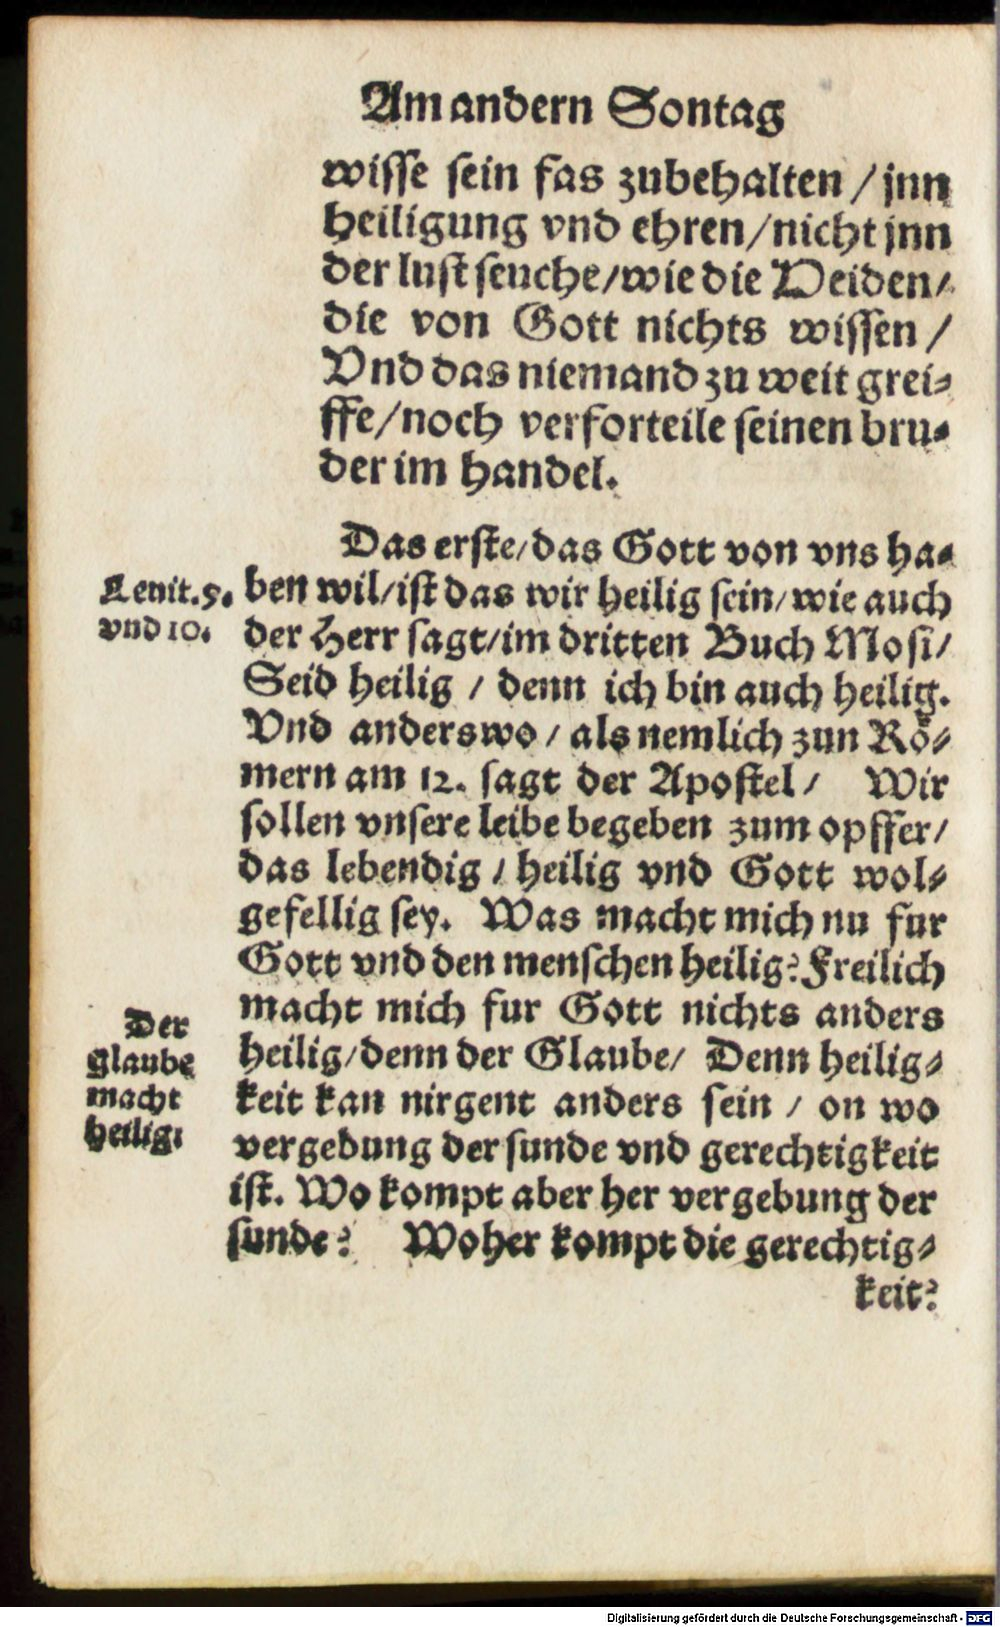 Am andern Sontag
wisse sein fas zubehalten / jnn
heiligung vnd ehren / nicht jnn
der lust seuche / wie die Deiden /
die von Gott nichts wissen /
Vnd das niemand zu weit grei-
ffe / noch verforteile seinen bru-
der im handel.
Das erste / das Gott von vns ha-
Leuit. 9.
vnd 10.
ben wil / ist das wir heilig sein / wie auch
der Herr sagt / im dritten Buch Mosi /
Seid heilig / denn ich bin auch heilig.
Vnd anderswo / als nemlich zun Rö-
mern am 12. sagt der Apostel / Wir
sollen vnsere leibe begeben zum opffer /
das lebendig / heilig vnd Gott wol-
gefellig sey. Was macht mich nu fur
Gott vnd den menschen heilig? Freilich
Der
glaube
macht
heilig.
macht mich fur Gott nichts anders
heilig / denn der Glaube / Denn heilig-
keit kan nirgent anders sein / on wo
vergebung der sunde vnd gerechtigkeit
ist. Wo kompt aber her vergebung der
sunde? Woher kompt die gerechtig-
keit?
Digitalisierung gefördert durch die Deutsche Forschungsgemeinschaft - DFG